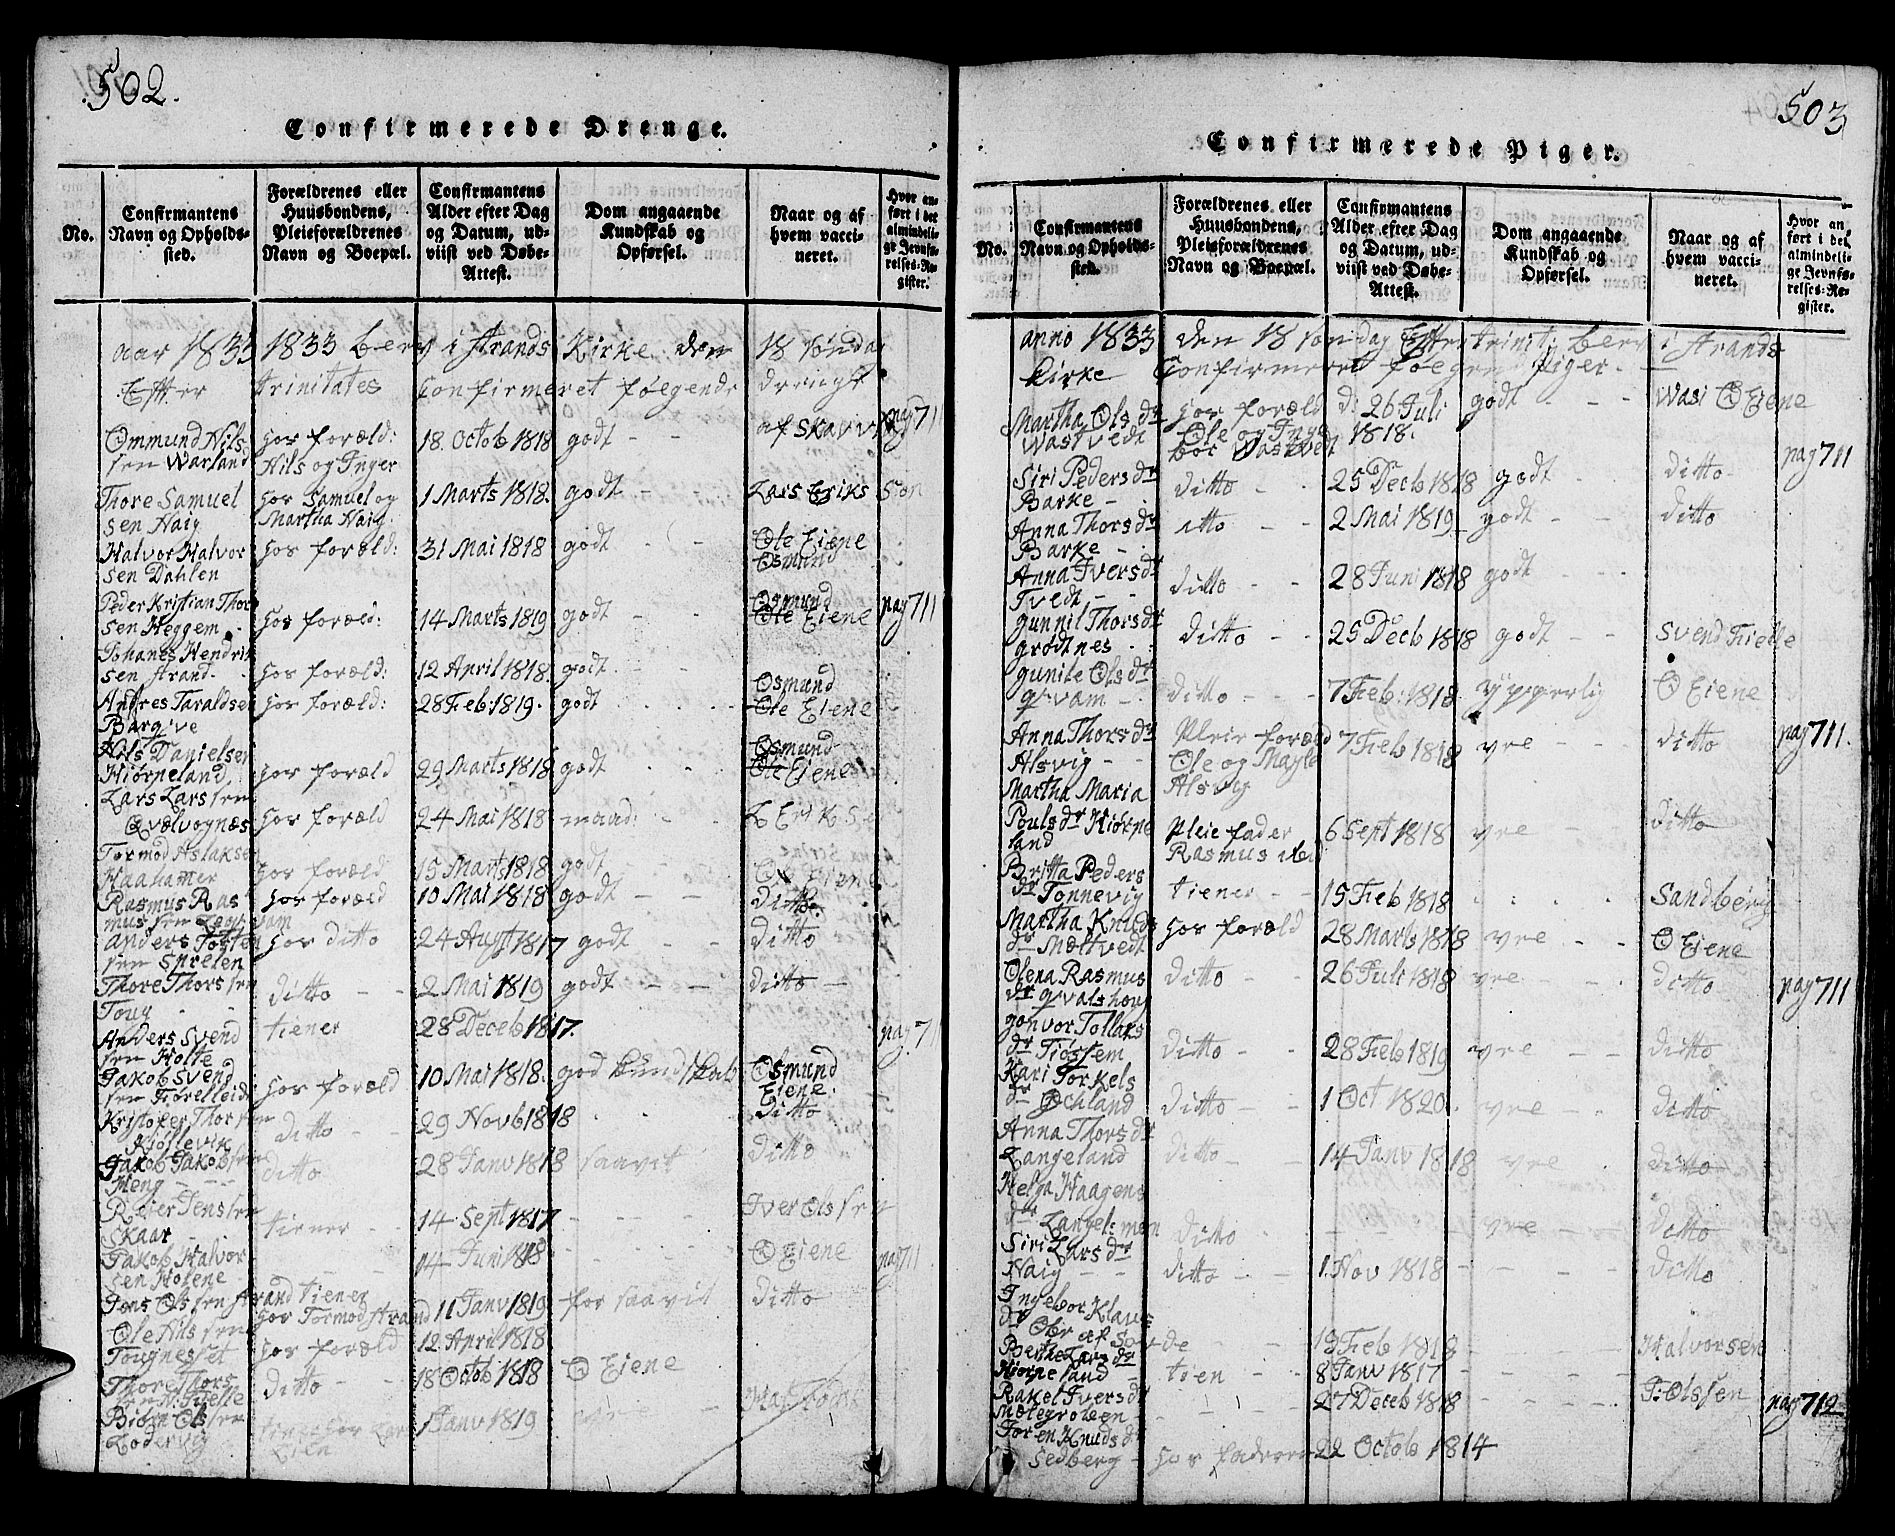 502.
Confirmerede Drenge.
No.
Confirmantens Navn og Opholdssted.
Forældrenes eller Huusbondens, Pleieforældrenes Navn og Boepæl.
Confirmantens Alder efter Dag og Datum, udviist ved Døbe-Attest.
Dom angaaende Kundskab og Opførsel.
Naar og af hvem vaccineret.
Hvor anført i det almindelige Jevnførelses-Register.
aar 1833 1833 blev i strands Kirke den 18 søndag
Efter trinitates Confirmeret følgende drenge
Ommund Nils sen Warland hos foræld: Nils og Inger 18. Octob 1818 godt - - af Skavvig pag 711
Thore Samuel sen Haig hos Samuel og Martha Haig. 1 Marts 1818. godt - Lars Eriks Søn
Halvor Halvor sen Dahlen hos foræld: 31 Mai 1818 godt - - Ole Eiene Osmund
Peder Kristian Thor sen Heggem hos foræld: 14 Marts 1819 godt - Osmund Ole Eiene pag 711
Johanes Hendrik sen strand. hos foræld: 12 April 1818. godt
Andres Taraldsen Bargive hos foræld: 28 Feb: 1819. godt Osmund Ole Eiene
Nils Danielsen Hiørneland hos foræld 29 Marts 1818 godt Osmund Ole Eiene
Lars Lars sen Qvælvognæs hos foræld 24 Mai 1818 maad: - L Erik Se
Tormod Aslaksen Haahamer hos foræld 15 Marts 1818 godt Ole Eiene
Rasmus Ras mus sen hos foræld 10 Mai 1818 godt - - Ditto.
anders Tosten sen Sprelen hos ditto 24 Augst 1817 godt - - Ditto
Thore Thors sen Toug ditto - - 2 Mai 1819 godt - - Ditto -
Anders Svend sen Holte tiener 28 Deceb 1817. pag 711
Jakob Svend sen Fiørelleide hos foræld 10 Mai 1818. god kundskab Osmund Eiene.
Kristofer Thorsen Kjøllevik ditto - - 29 Novb 1818 ditto
Jakob Jakobsen Meng - - - ditto 28 Janv 1818 saavit - Ditto
Peder Jenssen Skaar - tiener - - 14 Sept 1817 - - - Iver Olssen
Jakob Halvor sen Holene - - - 14 Juni 1818 - - - O Eiene pag 711
Jens Ols sen strand tiener hos Tormod strand 11 Janv 1819 for saavit ditto
Ole Nils sen Tougnesset hos foræld 12 April 1818
Thore Thors sen N: Fielle ditto - 18 Octob 1818 O Eiene
Biørn Ols sen Lodervig 1 Janv 1819
503
Confirmerede Piger.
No.
Confirmantens Navn og Opholdssted.
Forældrenes eller Huusbondens, Pleieforældrenes Navn og Boepæl.
Confirmantens Alder efter Dag og Datum, udviist ved Døbe-Attest.
Dom angaaende Kundskab og Opførsel.
Naar og af hvem vaccineret.
Hvor anført i det almindelige Jevnførelses-Register.
anno 1833 den 18 søndag Efter trinit: blev i strands
Kirke Confirmeret følgend Piger. -
Martha Ols dr Wastvedt hos foræld Ole og Inge bor Wastvedt d: 26 Juli 1818. godt - - Wasi O Eiene
Siri Peders dr Barke - ditto - - 25 Decb 1818 godt - ditto - pag 711
Anna Thors dr Barke - - itto - - 2 Mai 1819 godt - - ditto
Anna Ivers dr Tvedt - - ditto - - 28 Juni 1818 godt - - -
gunnil Thors dr grødtnes ditto - - 25 Decb 1818 godt - - Svend Fielle
gunile Ols dr qvam - ditto - - - 7 Feb: 1818 ypperlig O Eiene
Anna Thors dr Alsvig - - Pleie foræld Ole og Magle Alsvig 7 Feb 1818 vre - - ditto pag 711.
Martha Maria Pouls dr Hiørne land Pleie fader Rasmus ibid 6 Sept 1818 vre - ditto
Britta Peders dr Tonnevig tiener - - 15 Feb 1818 Sandberg
Martha Knuds dr Mæltvedt hos foræld 28 Marts 1818 vre - - O Eiene
Olena Rasmus dr qvalshoug ditto - 26 Juli 1818 vre - - - ditto pag 711
gonvor Tollaks dr Tiøssem ditto - - 28 Feb 1819 vre - - ditto
Kari Torkels dr Ochland Ditto - - 1 Oct 1820 vre - ditto
Anna Thors dr Langeland ditto - - 14 Janv 1818 vre - ditto
Helga Haagens dr Langel: men ditto - - - vre - - ditto
Siri Lars dr Haig - - ditto - - 1. Nov 1818 - - - ditto
Ingebor Klaus dr Obr af Sovde - 19 Feb 1818 - - - Halvorsen
Berthe Lars dr Hiørneland - tien - - 8 Janv 1817 - - -
Rakel Ivers dr Mæle groteen - - - 27 Deceb 1818 - - - I: Olssen pag 712
Toren Knuds dr Sedberg - hos faderen 22 Octob 1814